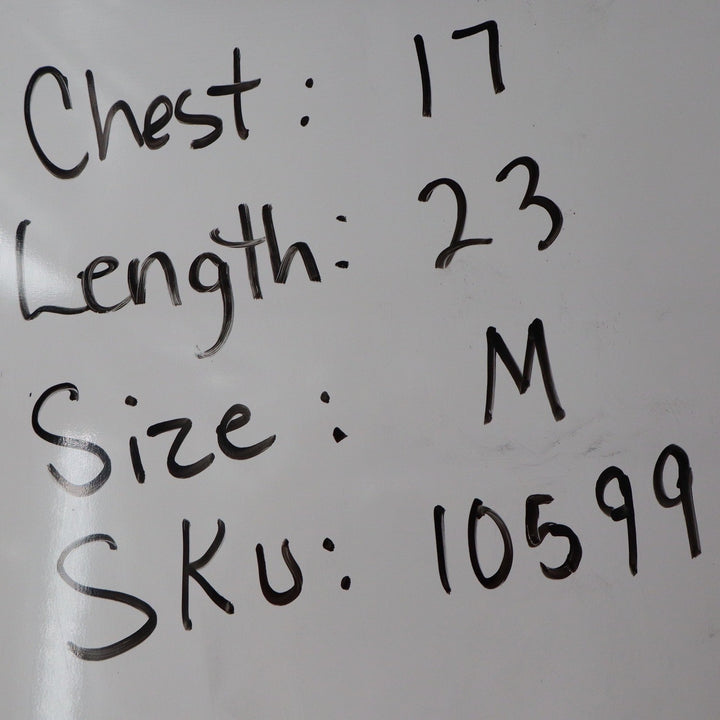 Chest: 17
Length: 23
Size: M
SKU: 10599